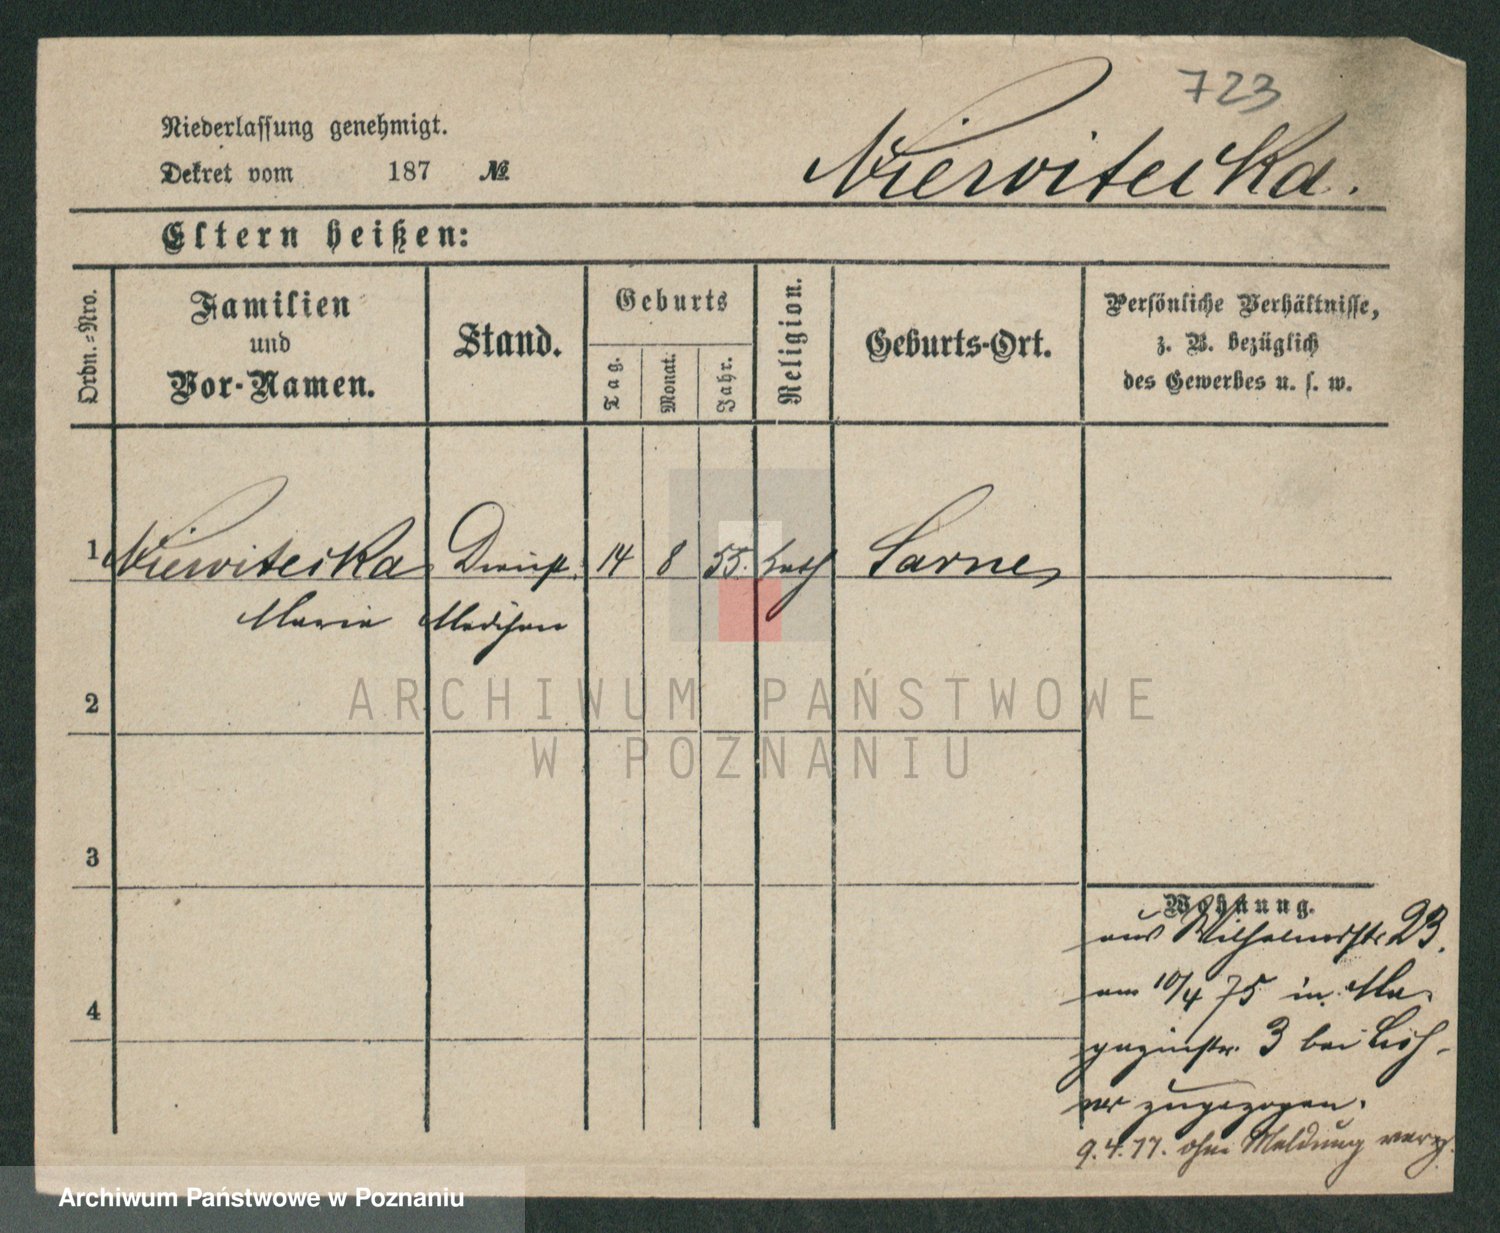 723
Niederlassung genehmigt.
Dekret vom 187 №
Nierviteika.
Eltern heißen:
Ordn.-Nro.
Familien
und
Vor-Namen.
Stand.
Geburts
Tag.
Monat.
Jahr.
Religion.
Geburts-Ort.
Persönliche Verhältnisse,
z. B. bezüglich
des Gewerbes u. s. w.
1 Nierviteika Dienst 14 8 55. kath Sarne
Marie Mädchen
2
3
4
Wohnung.
aus Wilhelmstr 23.
am 10/4 75 in Ma-
gazinstr. 3 bei
zugezogen.
9.4.77. ohne Meldung verz.
ARCHIWUM PAŃSTWOWE
W POZNANIU
Archiwum Państwowe w Poznaniu